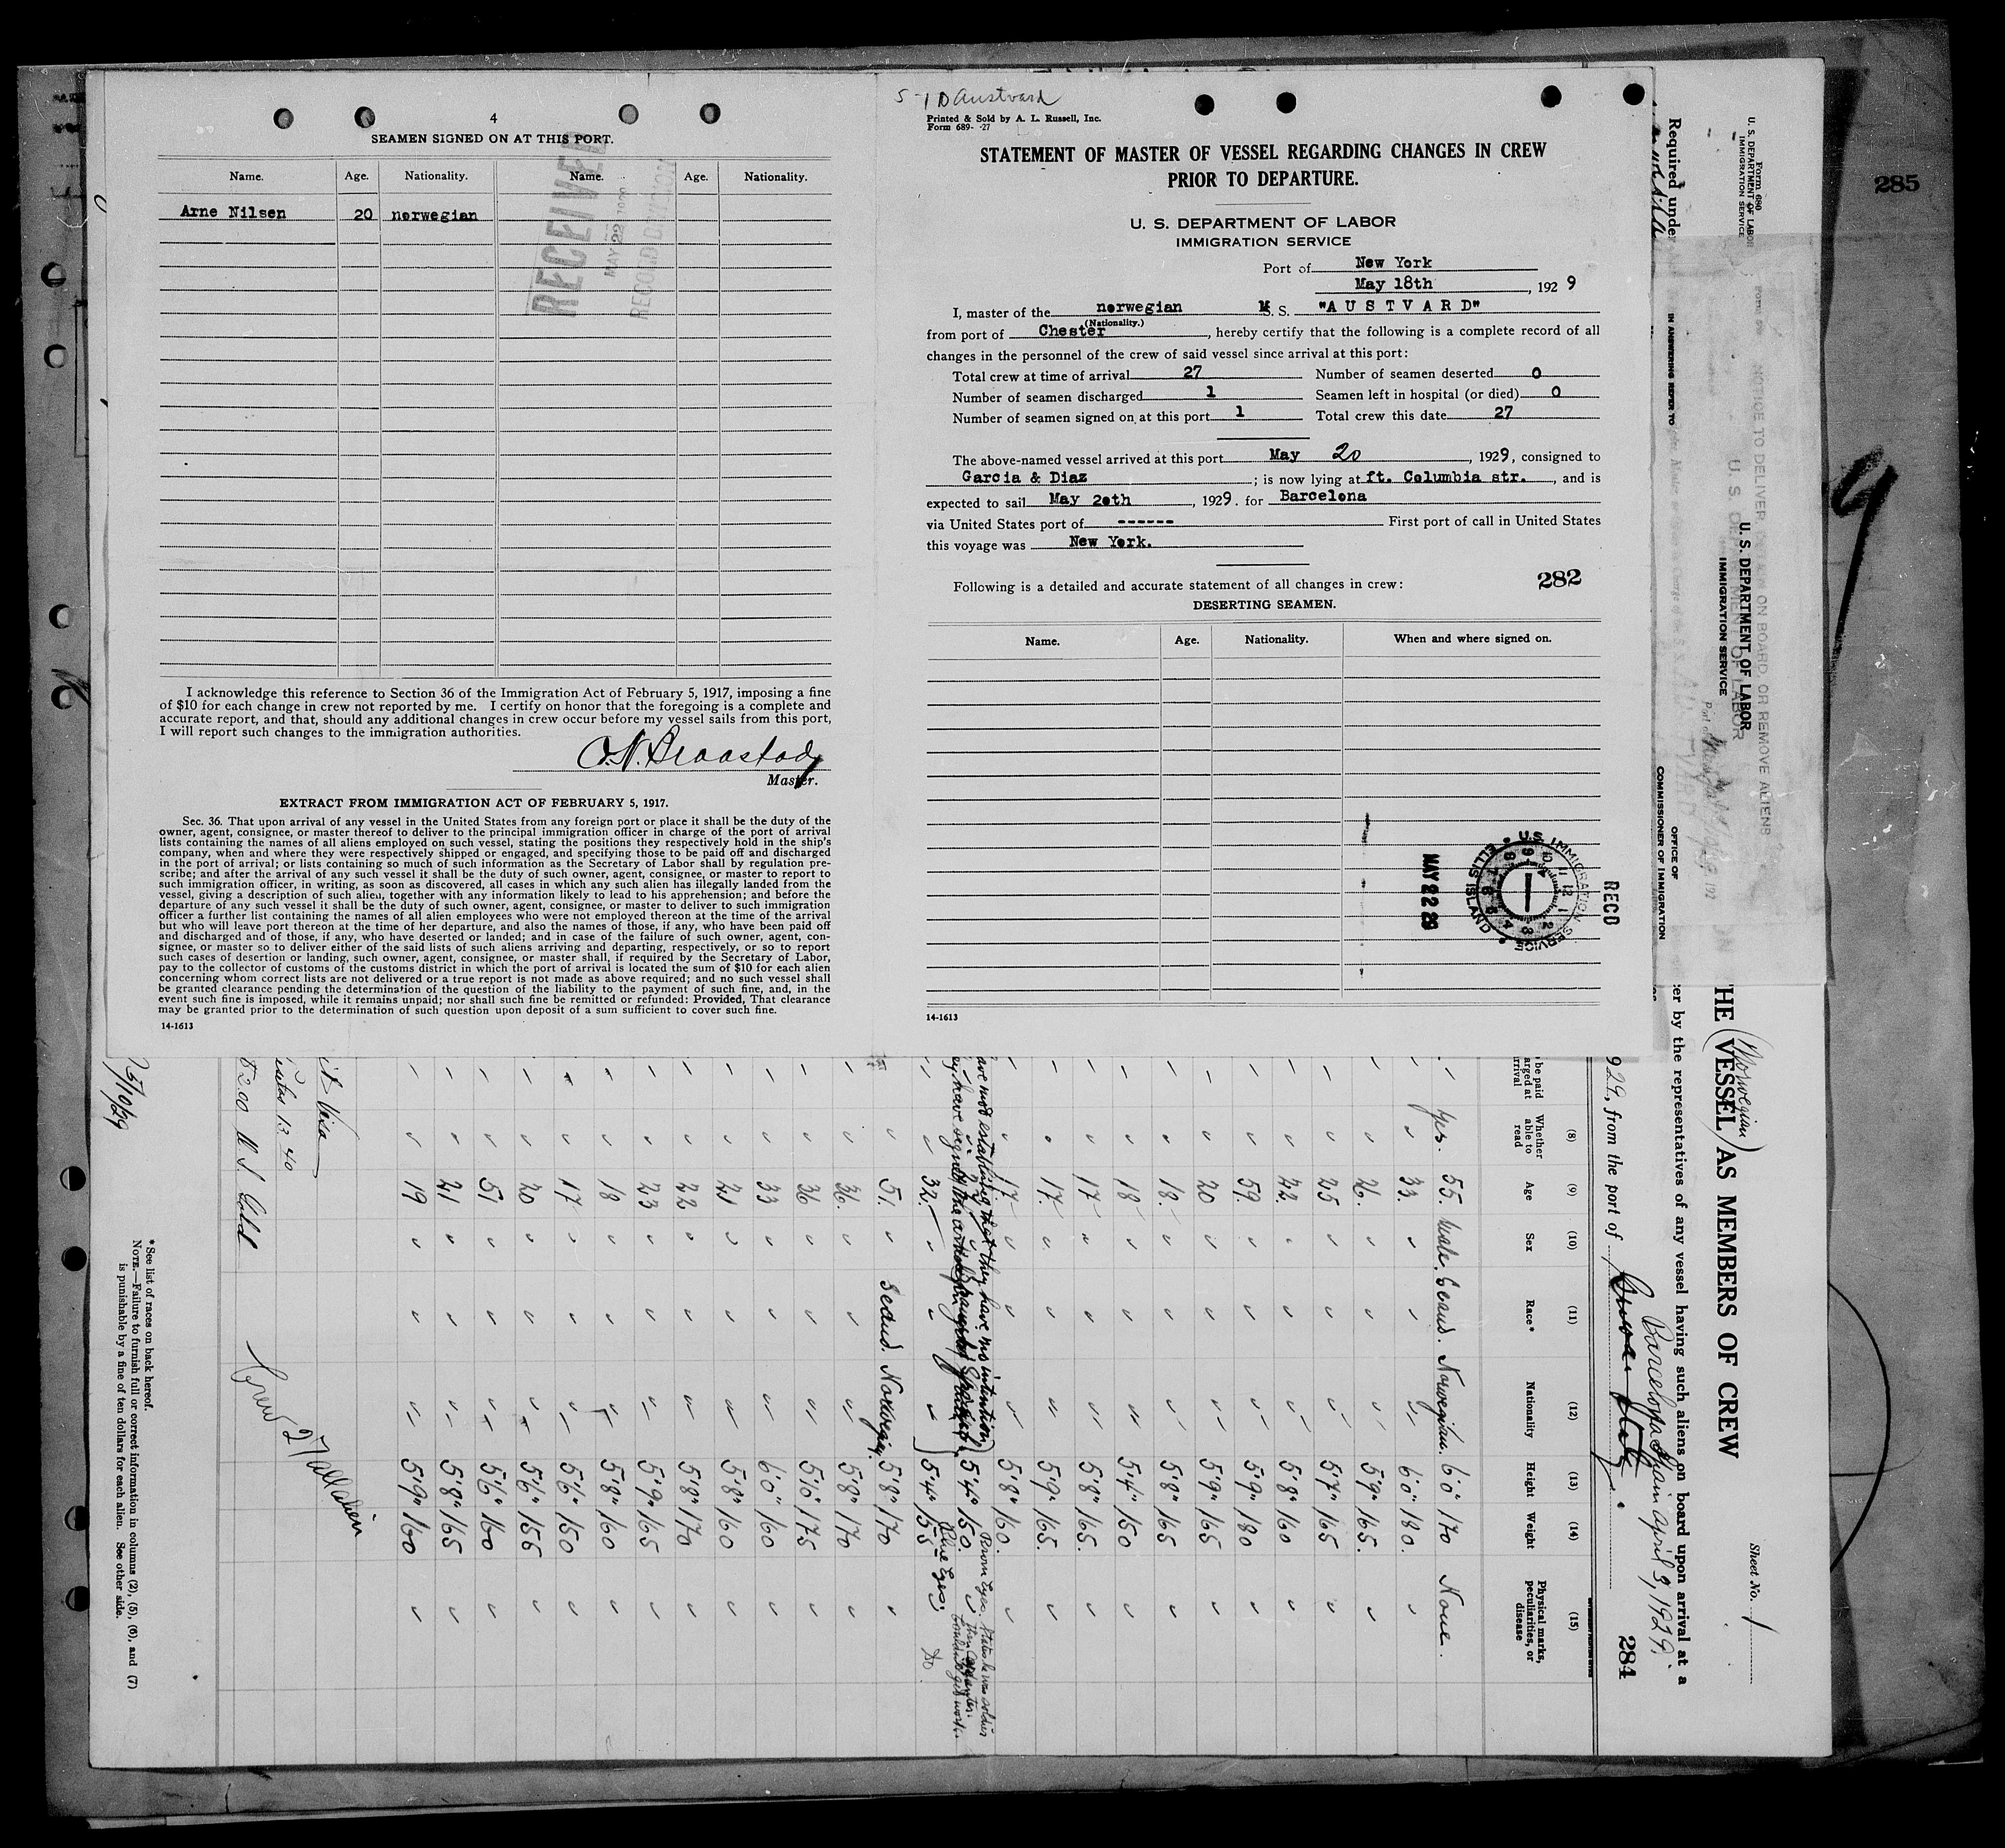 4
SEAMEN SIGNED ON AT THIS PORT.
Name. Age. Nationality. Name. Age. Nationality.
Arne Nilsen 20 norwegian
RECEIVED
MAY 22 1929
RECORD DIVISION
I acknowledge this reference to Section 36 of the Immigration Act of February 5, 1917, imposing a fine
of $10 for each change in crew not reported by me. I certify on honor that the foregoing is a complete and
accurate report, and that, should any additional changes in crew occur before my vessel sails from this port,
I will report such changes to the immigration authorities.
Master.
EXTRACT FROM IMMIGRATION ACT OF FEBRUARY 5, 1917.
Sec. 36. That upon arrival of any vessel in the United States from any foreign port or place it shall be the duty of the
owner, agent, consignee, or master thereof to deliver to the principal immigration officer in charge of the port of arrival
lists containing the names of all aliens employed on such vessel, stating the positions they respectively hold in the ship's
company, when and where they were respectively shipped or engaged, and specifying those to be paid off and discharged
in the port of arrival; or lists containing so much of such information as the Secretary of Labor shall by regulation pre-
scribe; and after the arrival of any such vessel it shall be the duty of such owner, agent, consignee, or master to report to
such immigration officer, in writing, as soon as discovered, all cases in which any such alien has illegally landed from the
vessel, giving a description of such alien, together with any information likely to lead to his apprehension; and before the
departure of any such vessel it shall be the duty of such owner, agent, consignee, or master to deliver to such immigration
officer a further list containing the names of all alien employees who were not employed thereon at the time of the arrival
but who will leave port thereon at the time of her departure, and also the names of those, if any, who have been paid off
and discharged and of those, if any, who have deserted or landed; and in case of the failure of such owner, agent, con-
signee, or master so to deliver either of the said lists of such aliens arriving and departing, respectively, or so to report
such cases of desertion or landing, such owner, agent, consignee, or master shall, if required by the Secretary of Labor,
pay to the collector of customs of the customs district in which the port of arrival is located the sum of $10 for each alien
concerning whom correct lists are not delivered or a true report is not made as above required; and no such vessel shall
be granted clearance pending the determination of the question of the liability to the payment of such fine, and, in the
event such fine is imposed, while it remains unpaid; nor shall such fine be remitted or refunded: Provided, That clearance
may be granted prior to the determination of such question upon deposit of a sum sufficient to cover such fine.
14-1613
Austvard
Printed & Sold by A. L. Russell, Inc.
Form 689- -27
STATEMENT OF MASTER OF VESSEL REGARDING CHANGES IN CREW
PRIOR TO DEPARTURE.
U. S. DEPARTMENT OF LABOR
IMMIGRATION SERVICE
Port of New York
May 18th, 1929
I, master of the norwegian M. S. "AUSTVARD"
(Nationality.)
from port of Chester, hereby certify that the following is a complete record of all
changes in the personnel of the crew of said vessel since arrival at this port:
Total crew at time of arrival 27 Number of seamen deserted 0
Number of seamen discharged 1 Seamen left in hospital (or died) 0
Number of seamen signed on at this port 1 Total crew this date 27
The above-named vessel arrived at this port May 20, 1929, consigned to
Garcia & Diaz; is now lying at ft. Columbia str., and is
expected to sail May 20th, 1929. for Barcelona
via United States port of ------ First port of call in United States
this voyage was New York.
Following is a detailed and accurate statement of all changes in crew: 282
DESERTING SEAMEN.
Name. Age. Nationality. When and where signed on.
RECD
U.S. IMMIGRATION SERVICE
ELLIS ISLAND
MAY 22 29
14-1613
285
Form 680
U. S. DEPARTMENT OF LABOR
IMMIGRATION SERVICE
Required under
IN ANSWERING REFER TO
NOTICE TO DELIVER ALIENS ON BOARD OR REMOVE ALIENS
U. S. DEPARTMENT OF LABOR
U. S. DEPARTMENT OF LABOR
IMMIGRATION SERVICE
OFFICE OF
COMMISSIONER OF IMMIGRATION
Sheet No. 1
HE (Norwegian VESSEL) AS MEMBERS OF CREW
er by the representatives of any vessel having such aliens on board upon arrival at a
Barcelona Spain april 9, 1929.
929, from the port of
284
be paid
arged at
arrival
(8) Whether able to read
(9) Age
(10) Sex
(11) Race*
(12) Nationality
(13) Height
(14) Weight
(15) Physical marks, peculiarities, or disease
Yes. 55 Male. Scand. Norwegian. 6'0" 170 None.
33 6'0" 180.
26. 5'9" 165.
25 5'7" 165
22. 5'8" 160
59. 5'9" 180
20 5'9" 165
18. 5'8" 165
18 5'4" 150
17 5'8" 165.
17. 5'9" 165.
17 5'8" 160.
have not established that they have no intention
5'4" 150. Brown Eyes.
32. 5'4" 155 Blue Eyes. Do.
51. Scand. Norwegian. 5'8" 170
36. 5'8" 170
36 5'10" 175
33 6'0" 160
21 5'8" 160
22 5'8" 170
23 5'9" 165
18 5'8" 160
17 5'6" 150
20 5'6" 155
51 5'6" 160
21 5'8" 165
19 5'9" 160
Visa
Crew 27 all alien
$2.00 U. S. Gold
*See list of races on back hereof.
NOTE.—Failure to furnish full or correct information in columns (2), (5), (6), and (7)
is punishable by a fine of ten dollars for each alien. See other side.